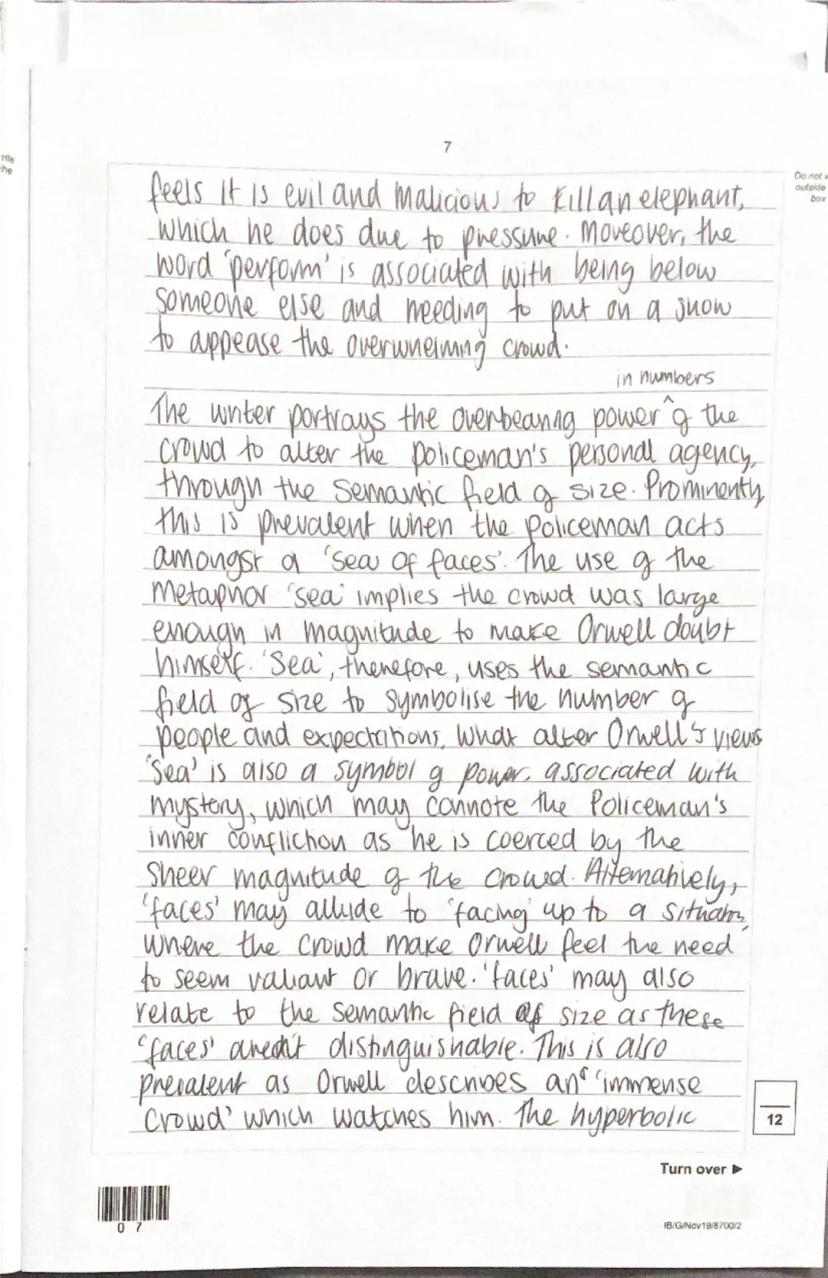 7
Do not w
outside
box
rite
the
feels it is evil and malicious to kill an elephant,
which he does due to pressure. Moreover, the
word 'perform' is associated with being below
someone else and needing to put on a show
to appease the overwhelming crowd.
in numbers
The writer portrays the overbearing power ^ of the
crowd to alter the policeman's personal agency,
through the semantic field of size. Prominently,
this is prevalent when the policeman acts
amongst a 'sea of faces'. The use of the
metaphor 'sea' implies the crowd was large
enough in magnitude to make Orwell doubt
himself. 'Sea', therefore, uses the semantic
field of size to symbolise the number of
people and expectations, what alter Orwell's views
'Sea' is also a symbol of power, associated with
mystery, which may connote the Policeman's
inner confliction as he is coerced by the
sheer magnitude of the crowd. Alternatively,
'faces' may allude to 'facing' up to a situation,
where the crowd make Orwell feel the need
to seem valiant or brave. 'faces' may also
relate to the semantic field of size as these
'faces' aren't distinguishable. This is also
prevalent as Orwell describes an 'immense
crowd' which watches him. The hyperbolic
12
Turn over ►
0 7
IB/G/Nov19/8700/2